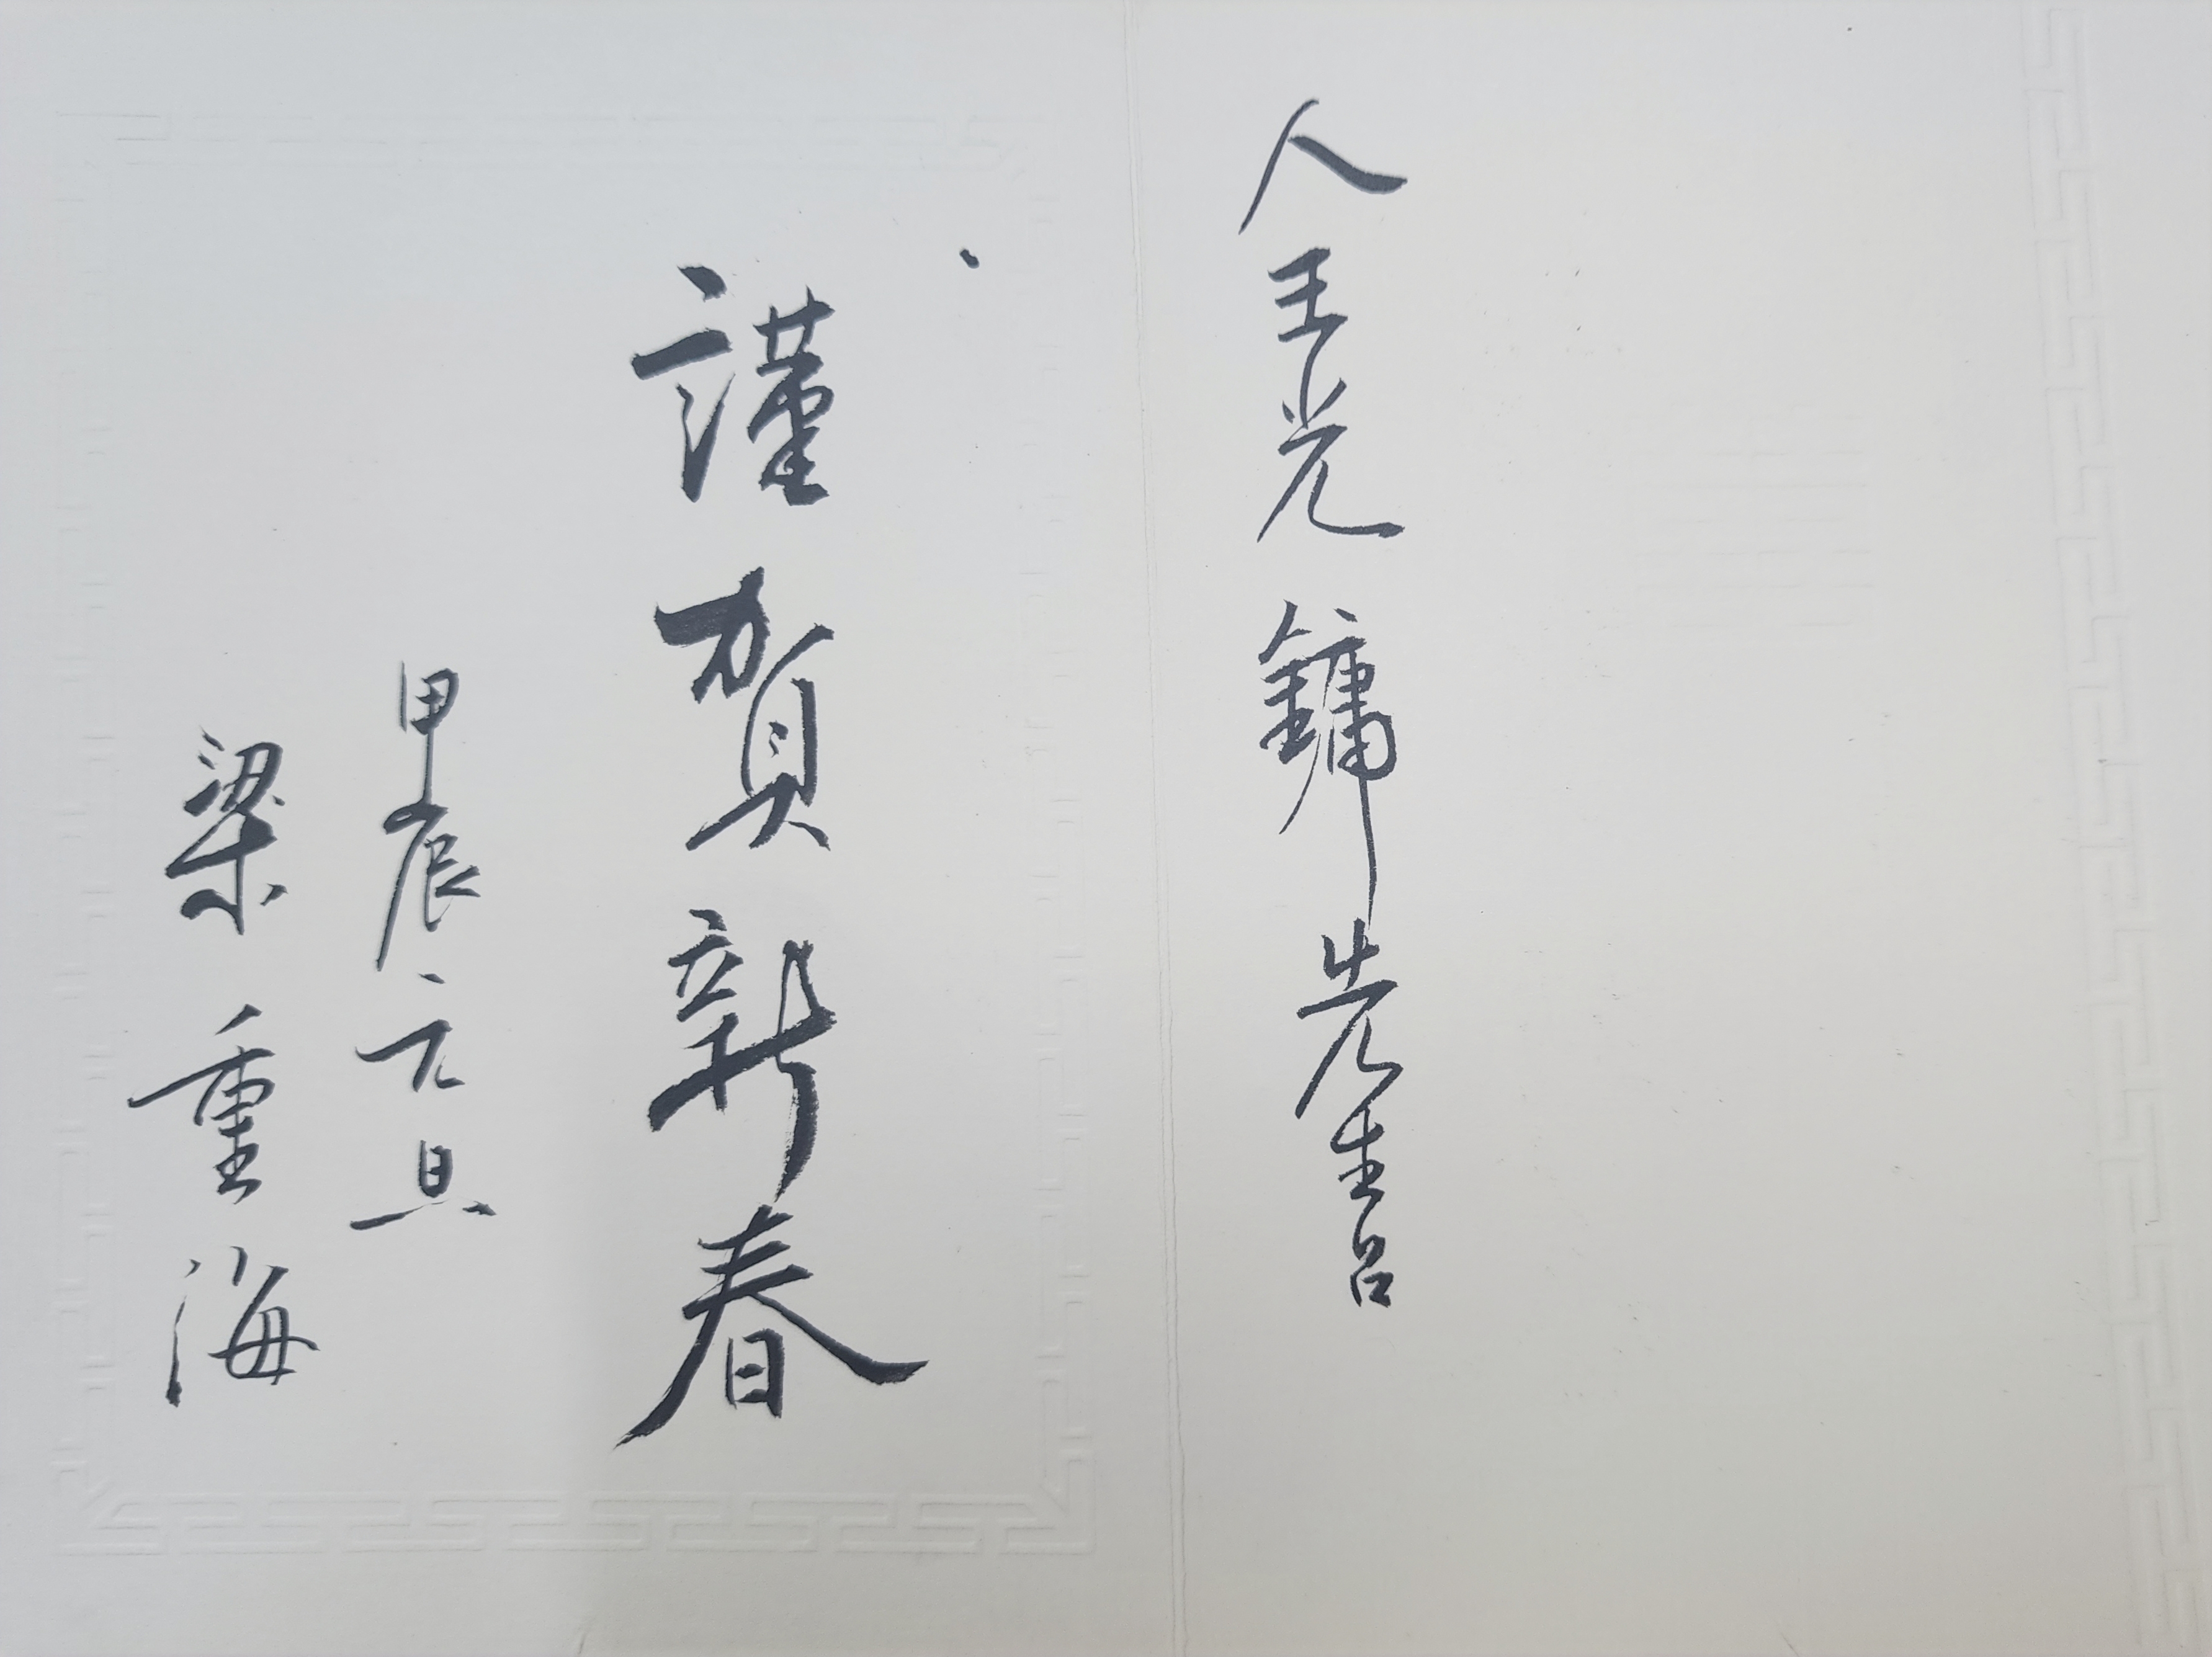 人王光鏞先生呂
謹賀新春
甲辰元旦
梁重海